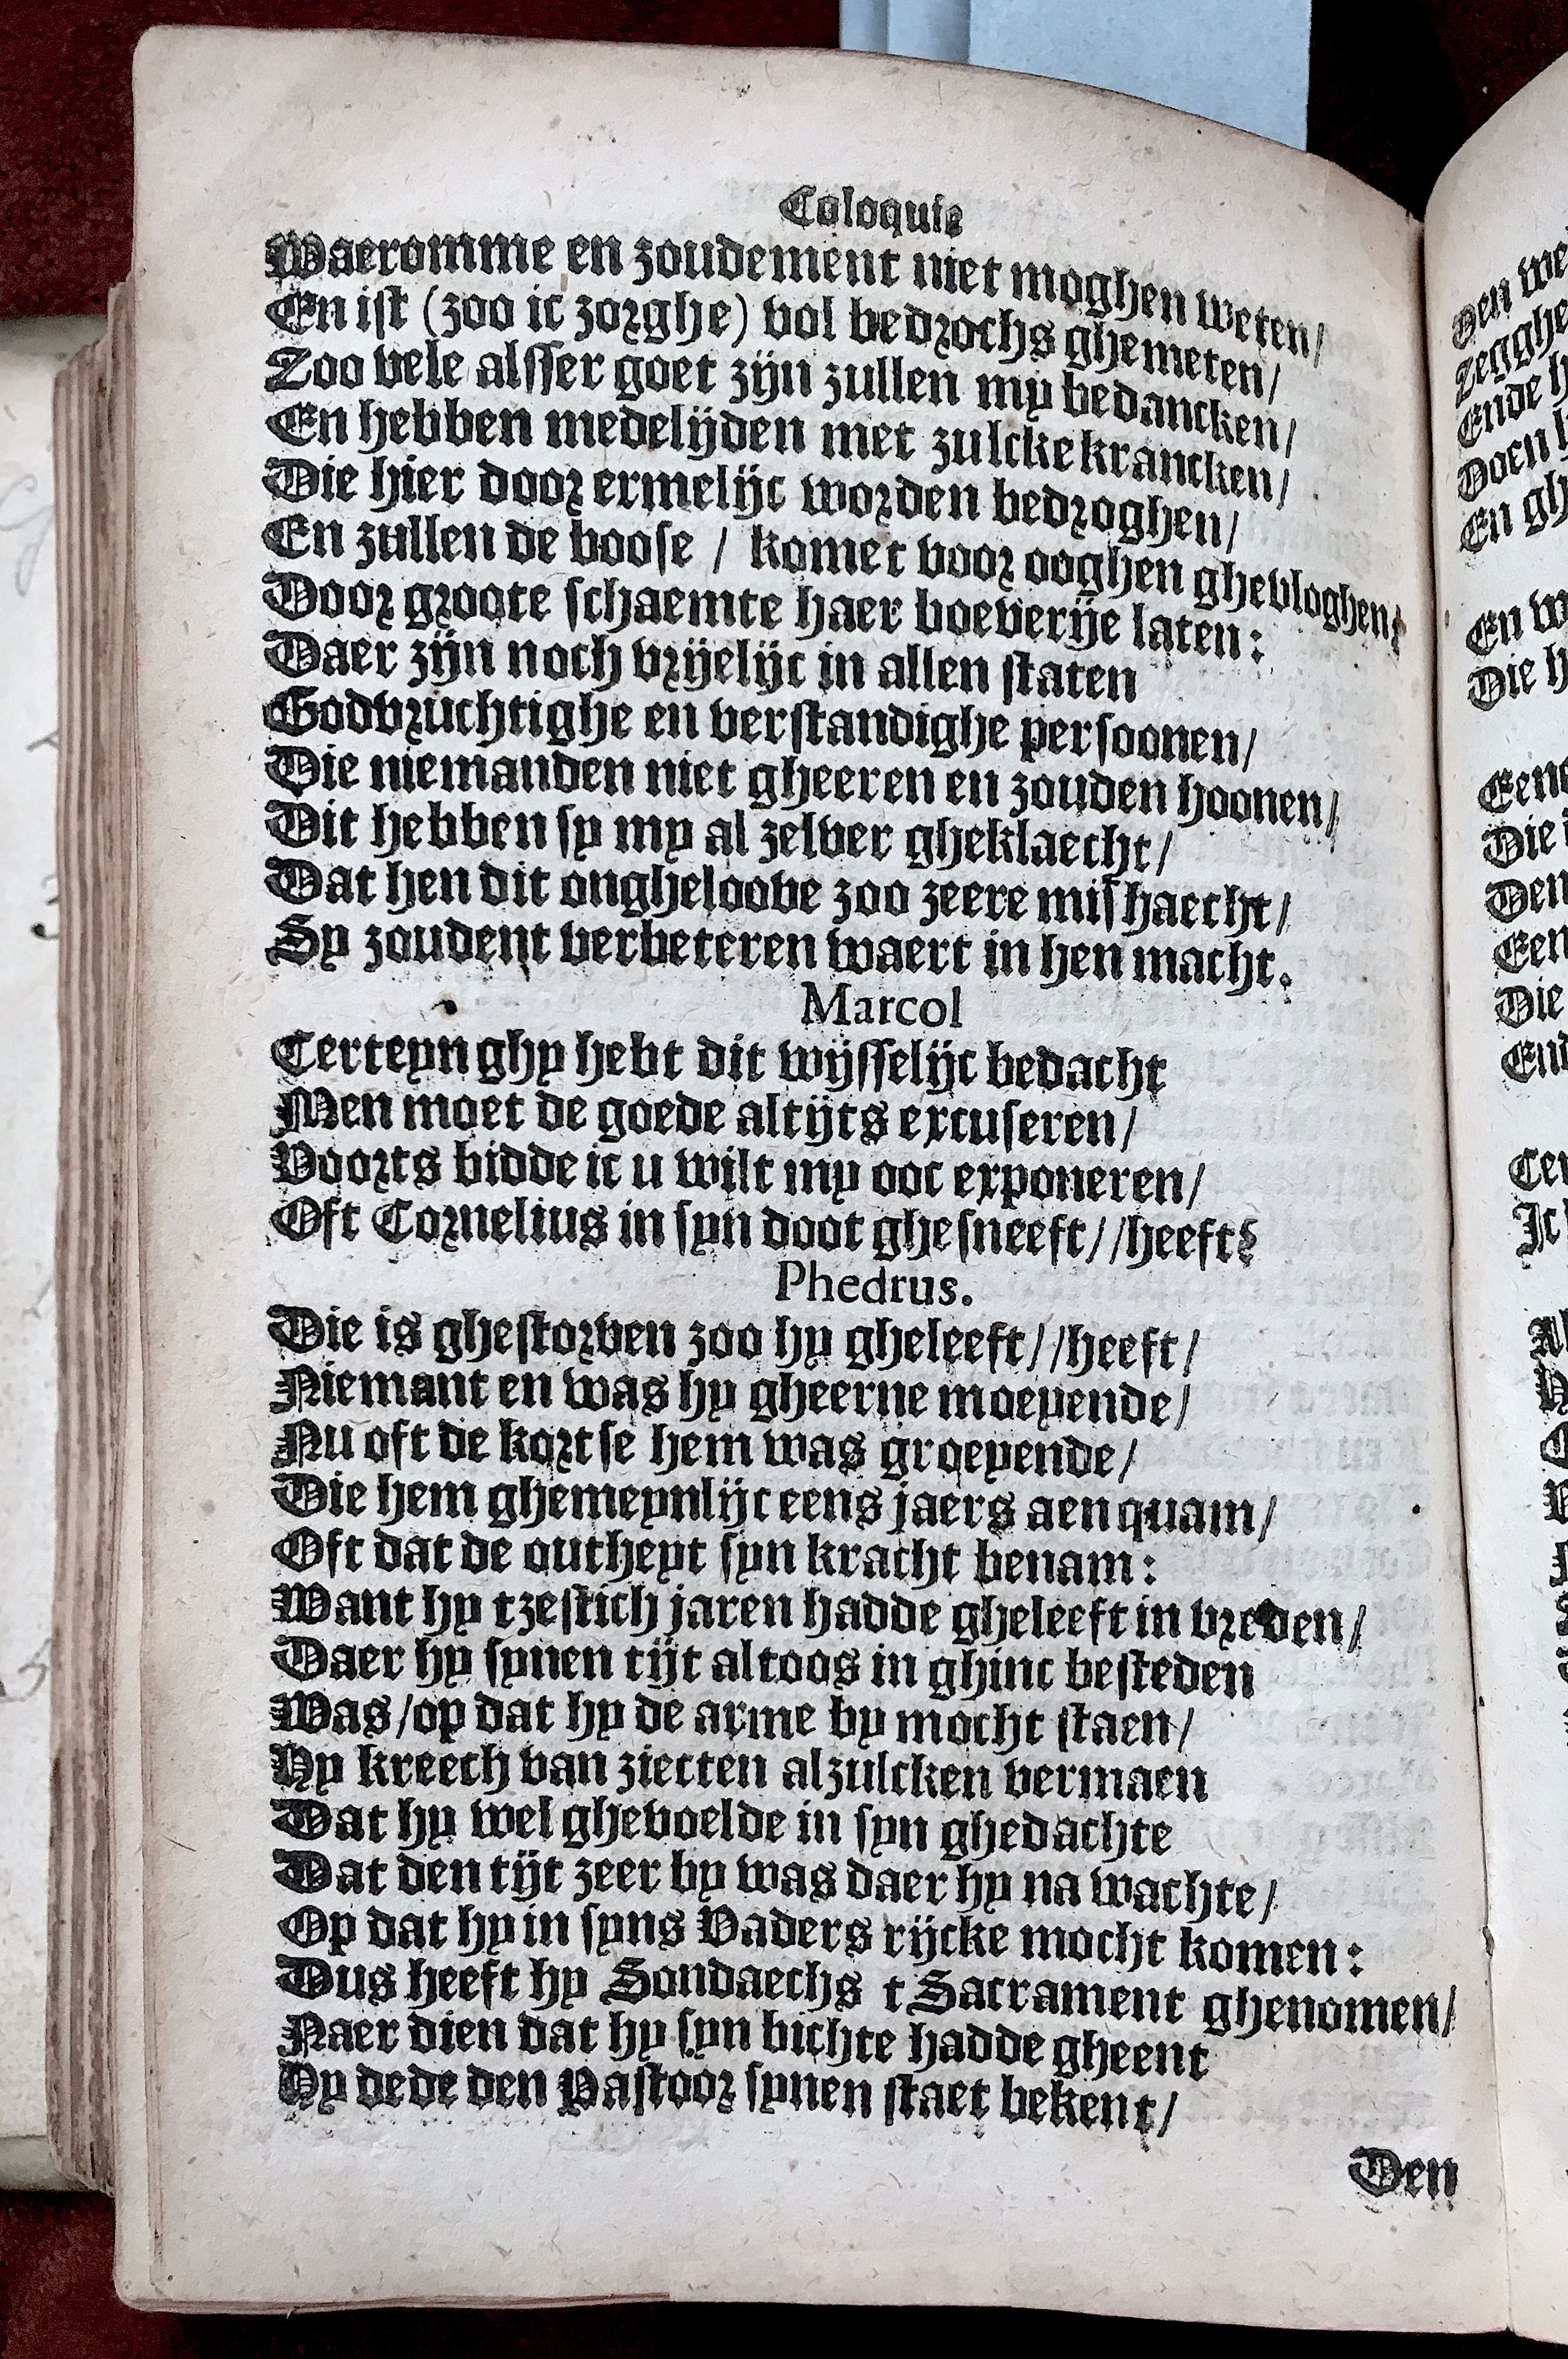 Coloquie
Waeromme en zoudement niet moghen weten/
En ist (zoo ic zorghe) vol bedrochs ghemeten/
Zoo vele alsser goet zijn zullen my bedancken/
En hebben medelijden met zulcke krancken/
Die hier door ermelijc worden bedroghen/
En zullen de boose / komet voor ooghen ghevloghen/
Door groote schaemte haer boeverije laten:
Daer zijn noch vrijelijc in allen staten
Godvruchtighe en verstandighe persoonen/
Die niemanden niet gheeren en zouden hoonen/
Dit hebben sy my al zelver gheklaecht/
Dat hen dit ongheloove zoo zeere mishaecht/
Sy zoudent verbeteren waert in hen macht.
Marcol
Certeyn ghy hebt dit wijsselijc bedacht
Men moet de goede altijts excuseren/
Voorts bidde ic u wilt my ooc exponeren/
Oft Cornelius in syn doot ghesneeft//heeft?
Phedrus.
Die is ghestorven zoo hy gheleeft//heeft/
Niemant en was hy gheerne moeyende/
Nu oft de kortse hem was groeyende/
Die hem ghemeynlijc eens jaers aen quam/
Oft dat de outheyt syn kracht benam:
Want hy tzestich jaren hadde gheleeft in vreden/
Daer hy synen tijt altoos in ghinc besteden
Was/op dat hy de arme by mocht staen/
Hy kreech van ziecten alzulcken vermaen
Dat hy wel ghevoelde in syn ghedachte
Dat den tijt zeer by was daer hy na wachte/
Op dat hy in syns Vaders rijcke mocht komen:
Dus heeft hy Sondaechs t Sacrament ghenomen/
Naer dien dat hy syn bichte hadde gheent
Hy dede den Pastoor synen staet bekent/
Den